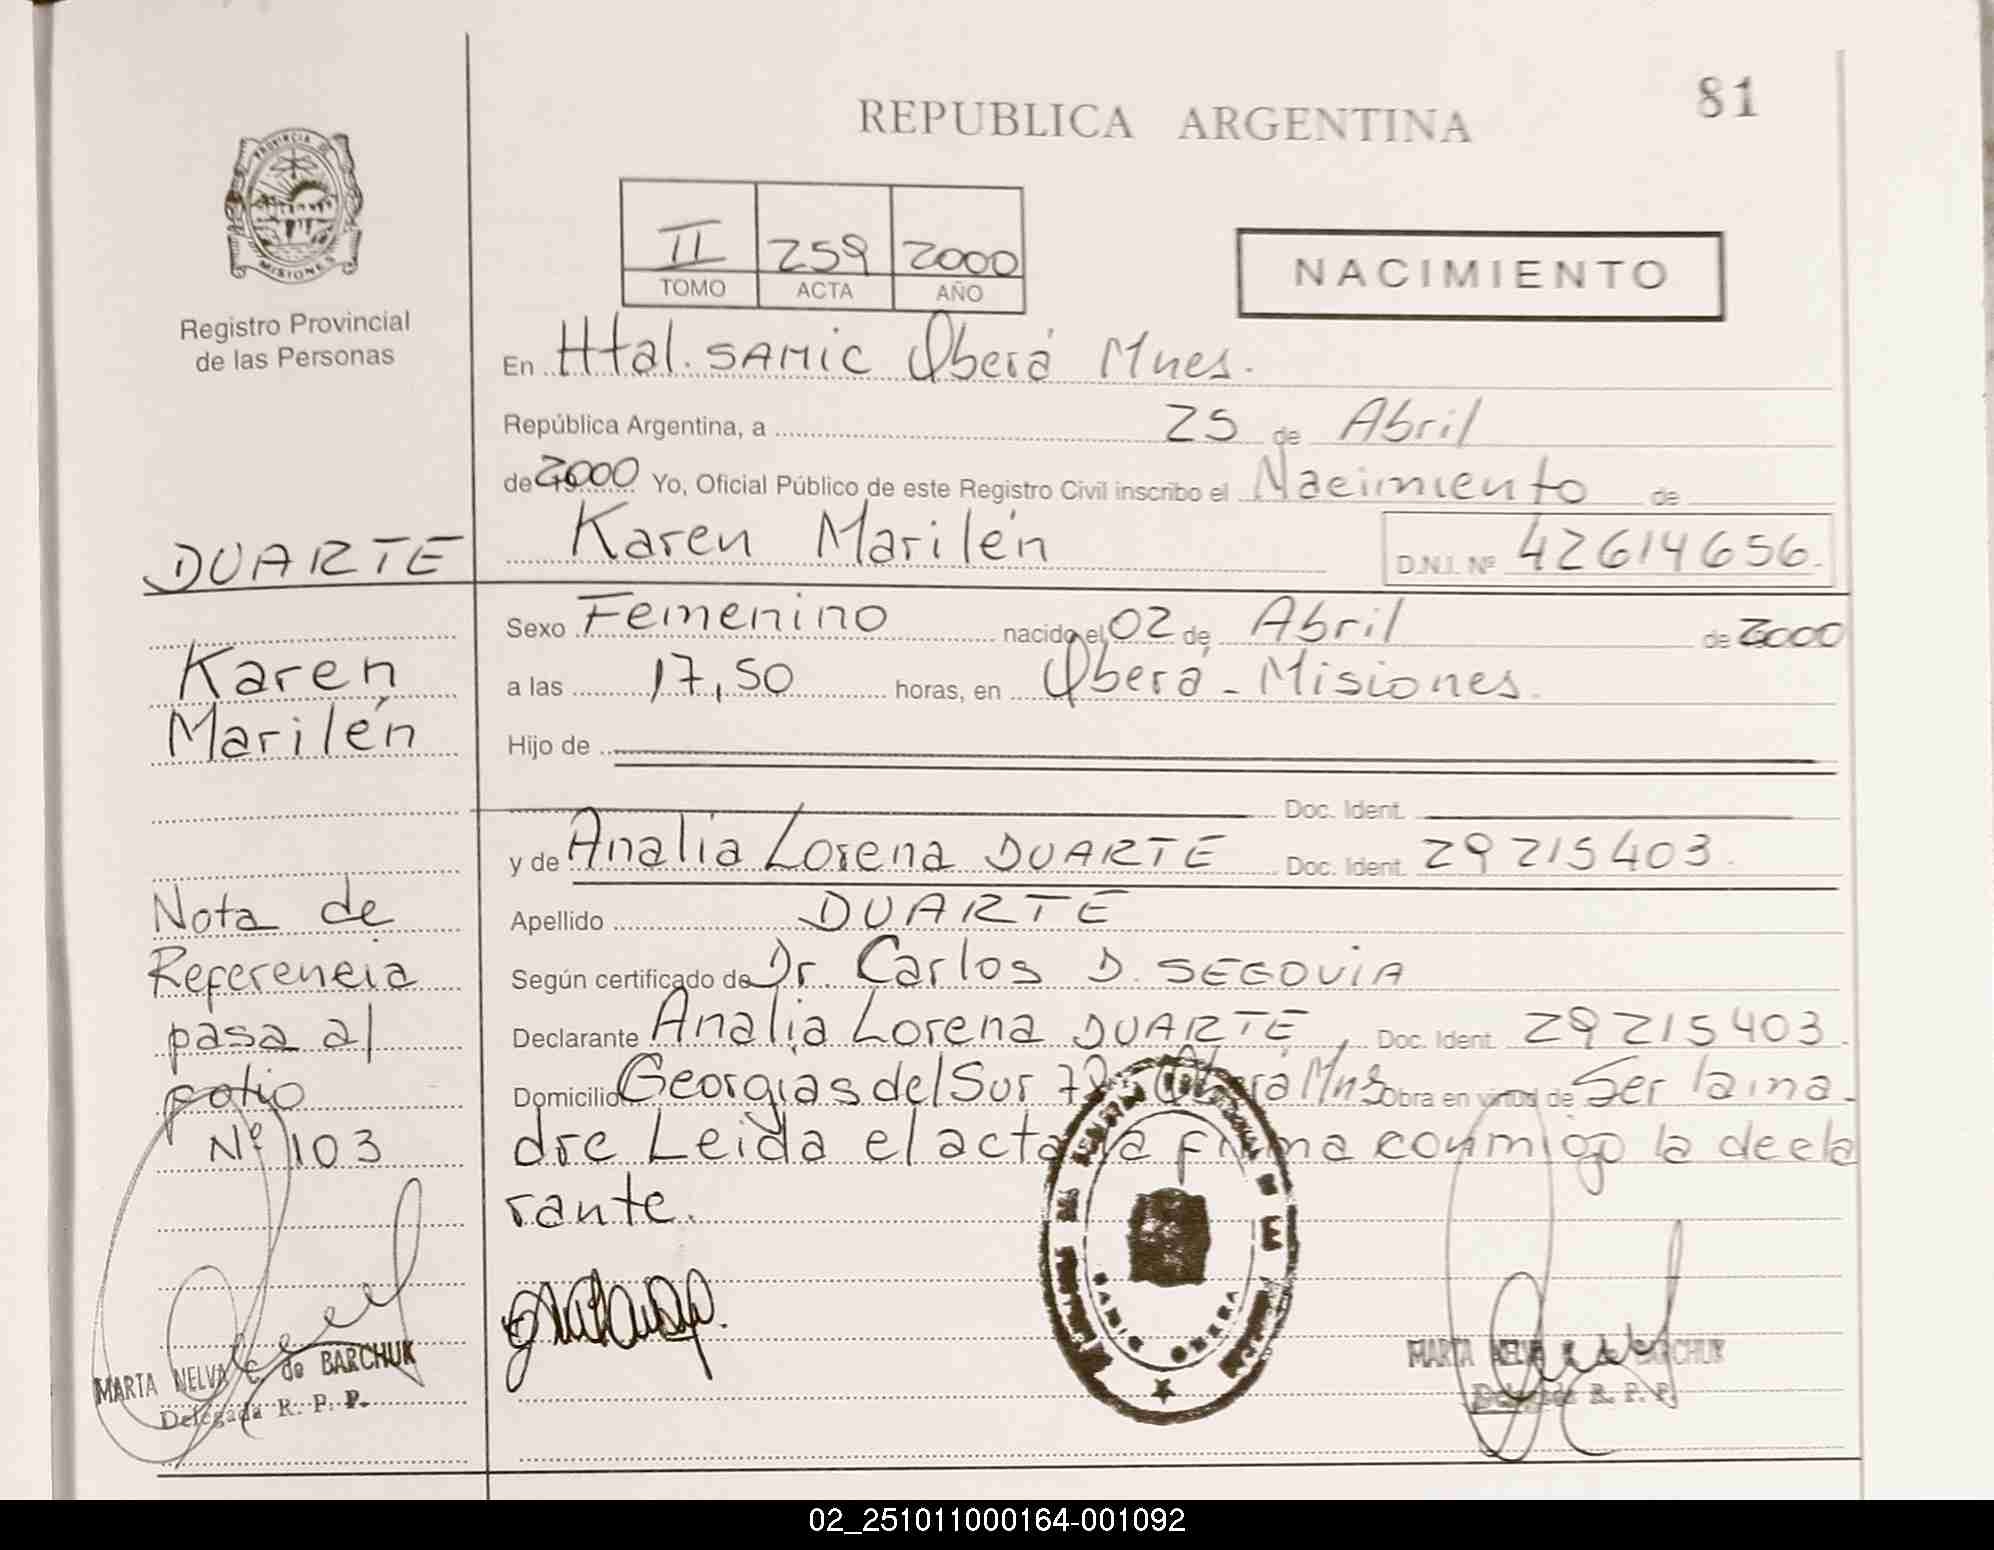 81
REPUBLICA ARGENTINA
PROVINCIA DE
MISIONES
Registro Provincial
de las Personas
II 259 2000
TOMO ACTA AÑO
NACIMIENTO
En Htal. SAMIC Oberá Mnes.
República Argentina, a 25 de Abril
de 2000 Yo, Oficial Público de este Registro Civil inscribo el Nacimiento de
Karen Marilén D.N.I. Nº 42614656.
DUARTE
Karen
Marilén
Sexo Femenino nacido el 02 de Abril de 2000
a las 17,50 horas, en Oberá - Misiones.
Hijo de
Doc. Ident.
y de Analia Lorena DUARTE Doc. Ident. 29215403.
Apellido DUARTE
Según certificado de Dr. Carlos D. SEGOVIA
Declarante Analia Lorena DUARTE, Doc. Ident. 29215403.
Domicilio Georgias del Sur Oberá Mns Obra en virtud de Ser la ma-
dre Leida el acta la firma conmigo la decla
rante.
Nota de
Referencia
pasa al
folio
Nº 103
MARTA NELVA C. de BARCHUK
Delegada R. P. P.
SAMIC OBERA
MARTA NELVA C. de BARCHUK
Delegada R. P. P.
02_251011000164-001092